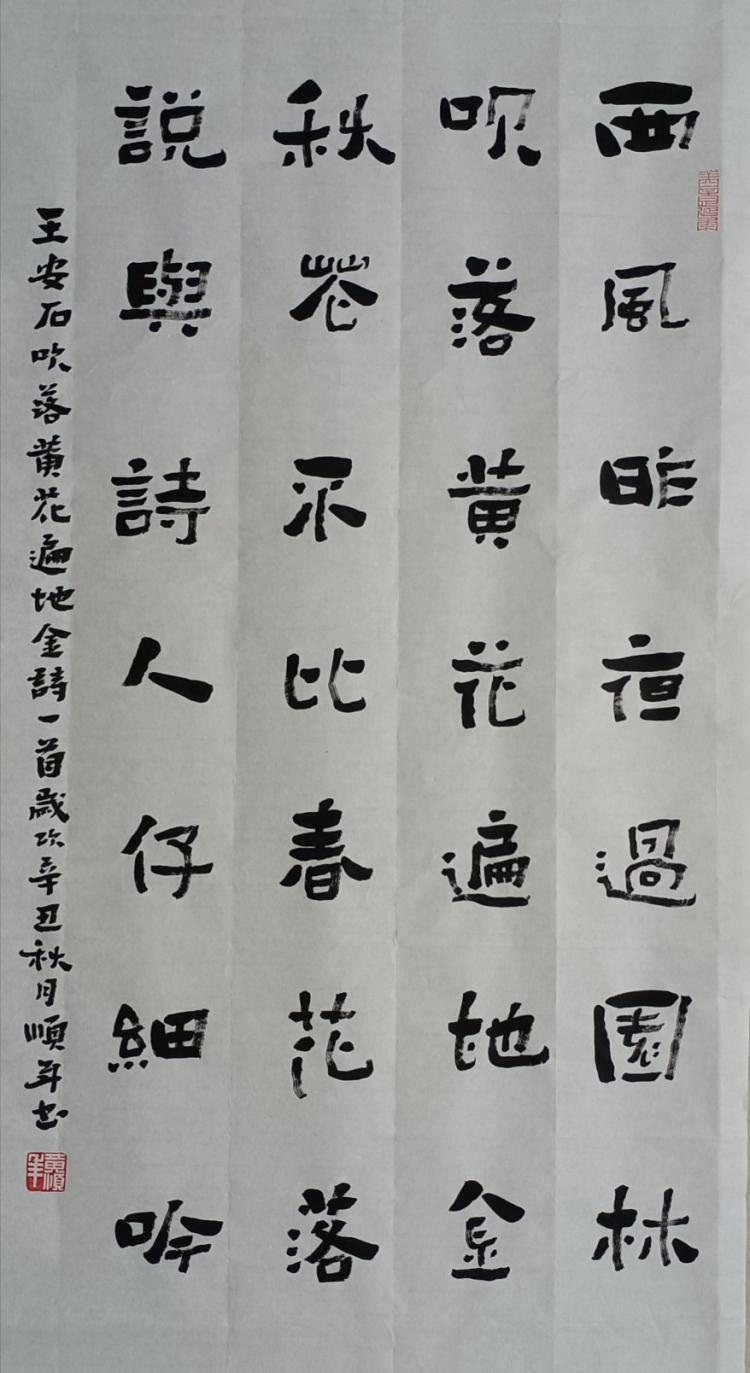 西風昨夜過園林
吹落黄花遍地金
秋花不比春花落
說與詩人仔細吟
王安石吹落黄花遍地金詩一首歲次辛丑秋月順年书
黄順年